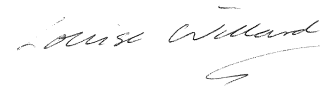 Louise Willard